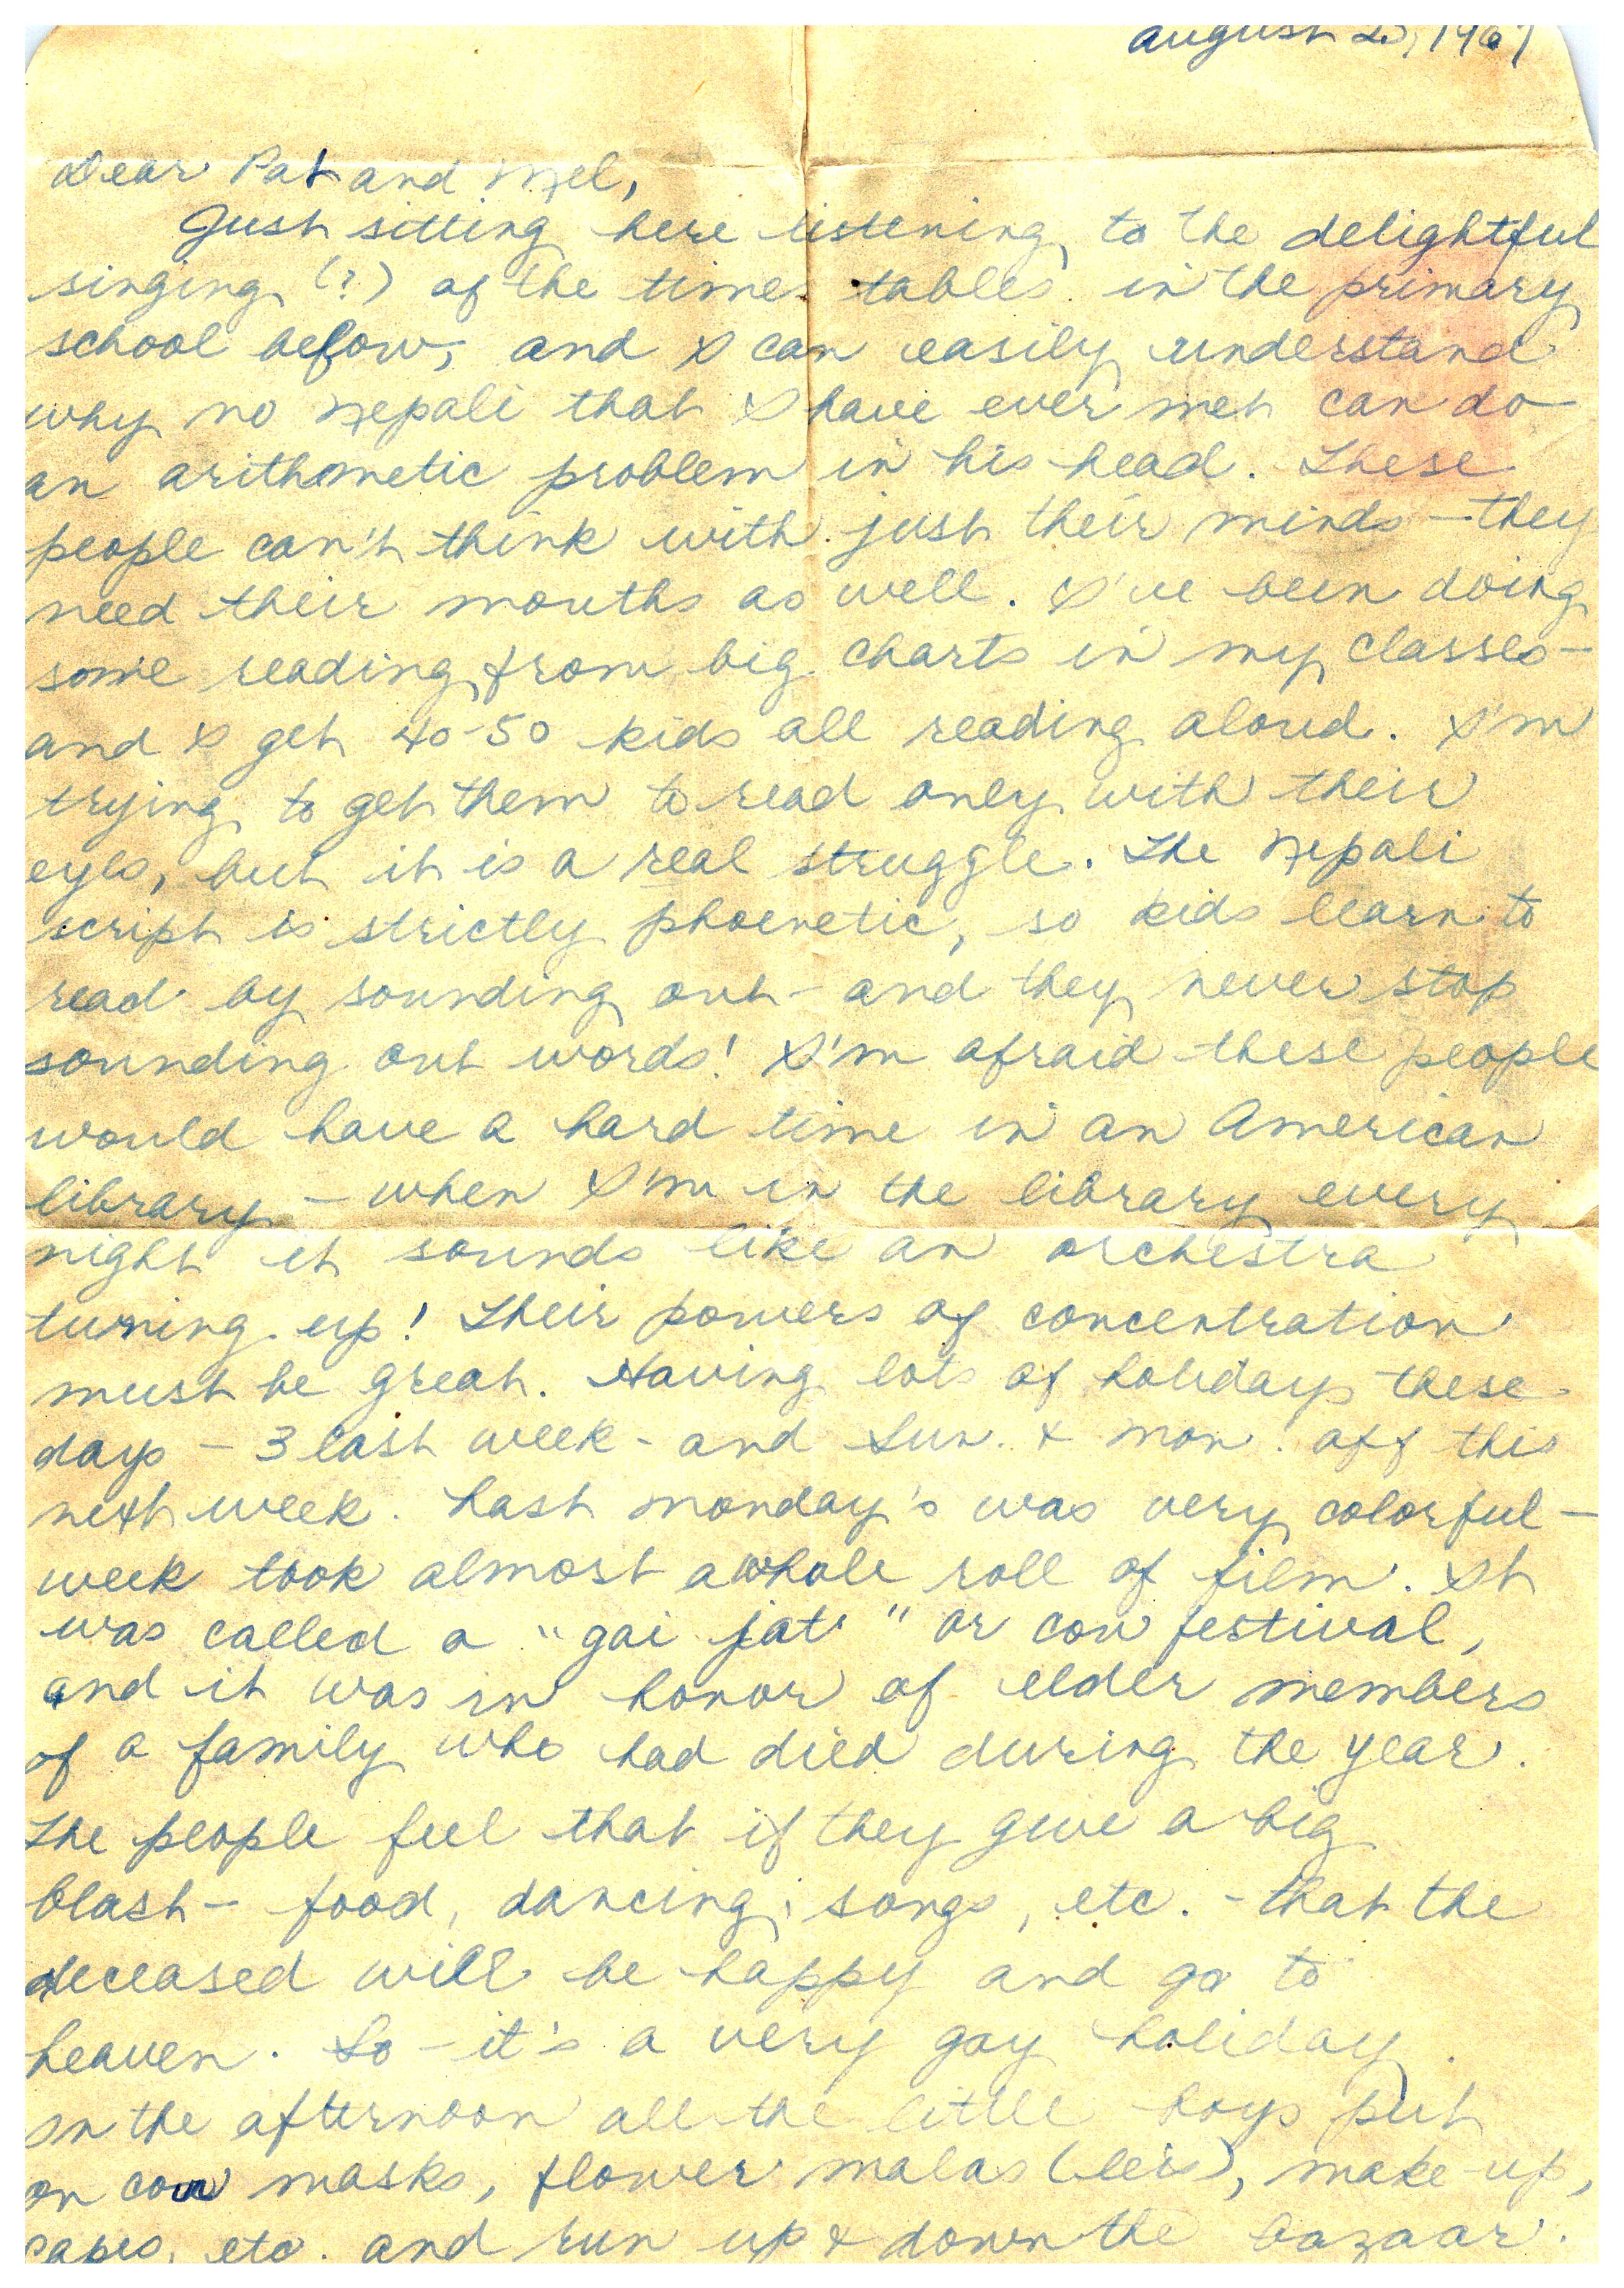 August 25, 1967
Dear Pat and Mel,
Just sitting here listening to the delightful
singing (?) of the times tables in the primary
school below, and I can easily understand
why no Nepali that I have ever met can do
an arithmetic problem in his head. These
people can't think with just their minds - they
need their mouths as well. I've been doing
some reading from big charts in my classes -
and I get 40-50 kids all reading aloud. I'm
trying to get them to read only with their
eyes, but it is a real struggle. The Nepali
script is strictly phoenetic, so kids learn to
read by sounding out - and they never stop
sounding out words! I'm afraid these people
would have a hard time in an American
library - when I'm in the library every
night it sounds like an orchestra
tuning up! Their powers of concentration
must be great. Having lots of holidays these
days - 3 last week - and Sun. & Mon. off this
next week. Last Monday's was very colorful -
week took almost a whole roll of film. It
was called a "gai jat " or cow festival,
and it was in honor of elder members
of a family who had died during the year.
The people feel that if they give a big
blast - food, dancing, songs, etc. - that the
deceased will be happy and go to
heaven. So - it's a very gay holiday.
In the afternoon all the little boys put
on cow masks, flower malas (leis), make-up,
capes, etc. and run up & down the bazaar.